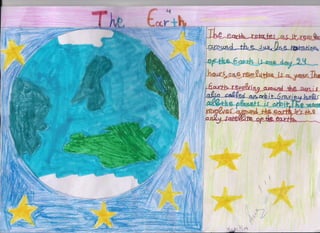 The Earth
The earth rotates as it revolves
around the sun. One rotation
of the Earth is one day 24
hours, one revolution is a year. The
Earth revolving around the sun is
also called an orbit. Gravity holds
all the planets is orbit. The moon
revolves around the earth. It's the
only satellite of the earth